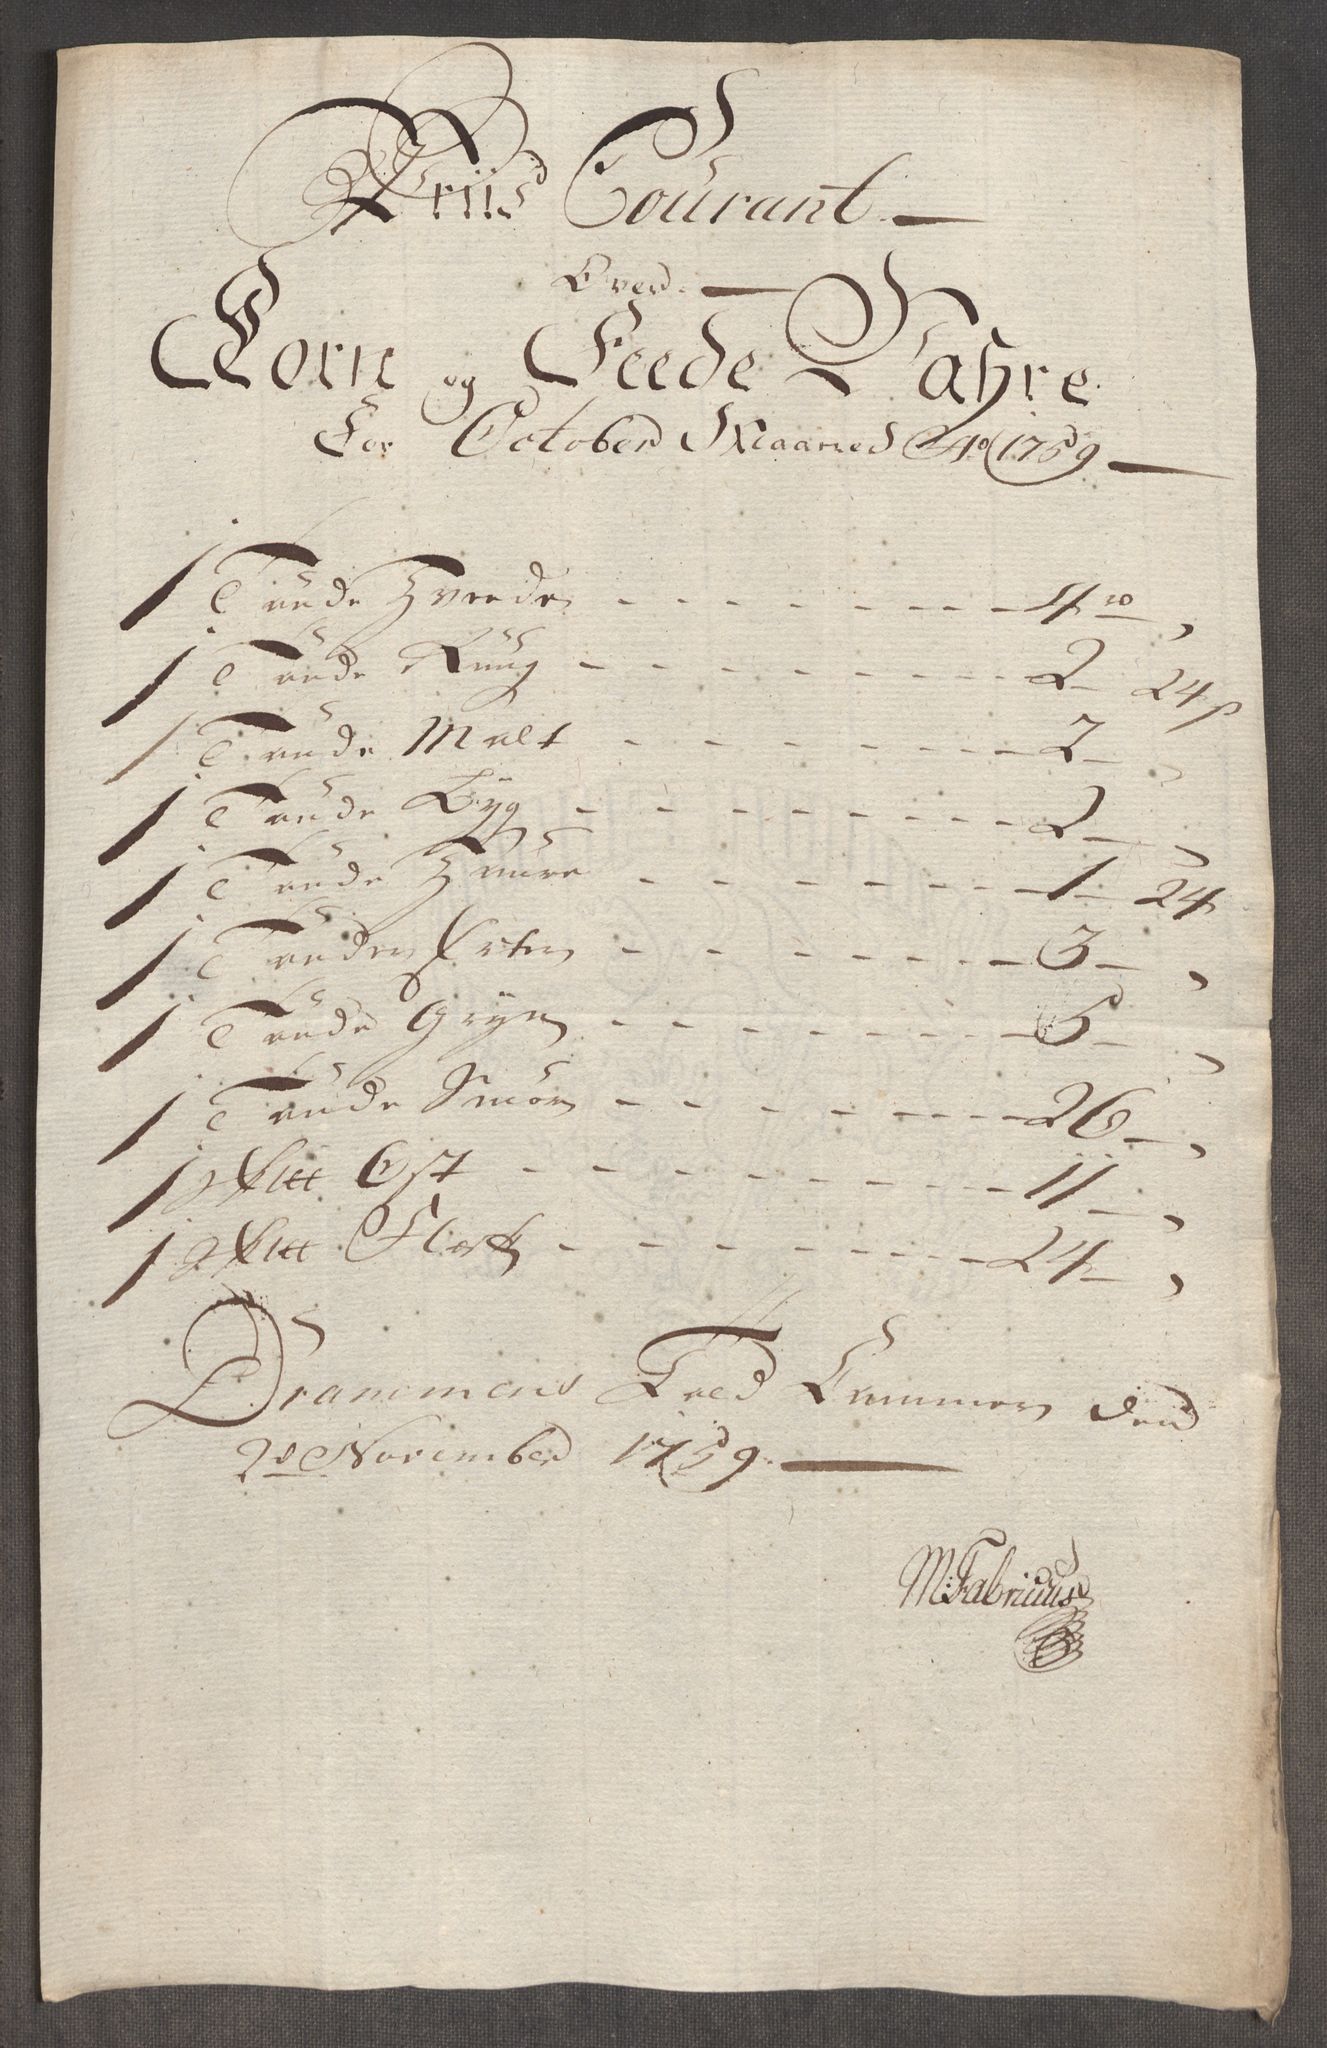 Priis Courant
Over
Corn og Feede Vahre
For October Maaned Ao 1759
1 Tønde Hvede - - - 4 rd "
1 Tønde Rüug - - - 2 - 24 s
1 Tønde Malt - - - 2 - "
1 Tønde Byg - - - 2 - "
1 Tønde Haure - - - 1 - 24
1 Tønde Erter - - - 3 - "
1 Tønde Gryn - - - 5 - "
1 Tønde Smør - - - 26 - "
1 Ost - - - 11 - "
1 Flesk - - - 24 - "
Drammens Told Cammer den
2de November 1759
M: Fabricius